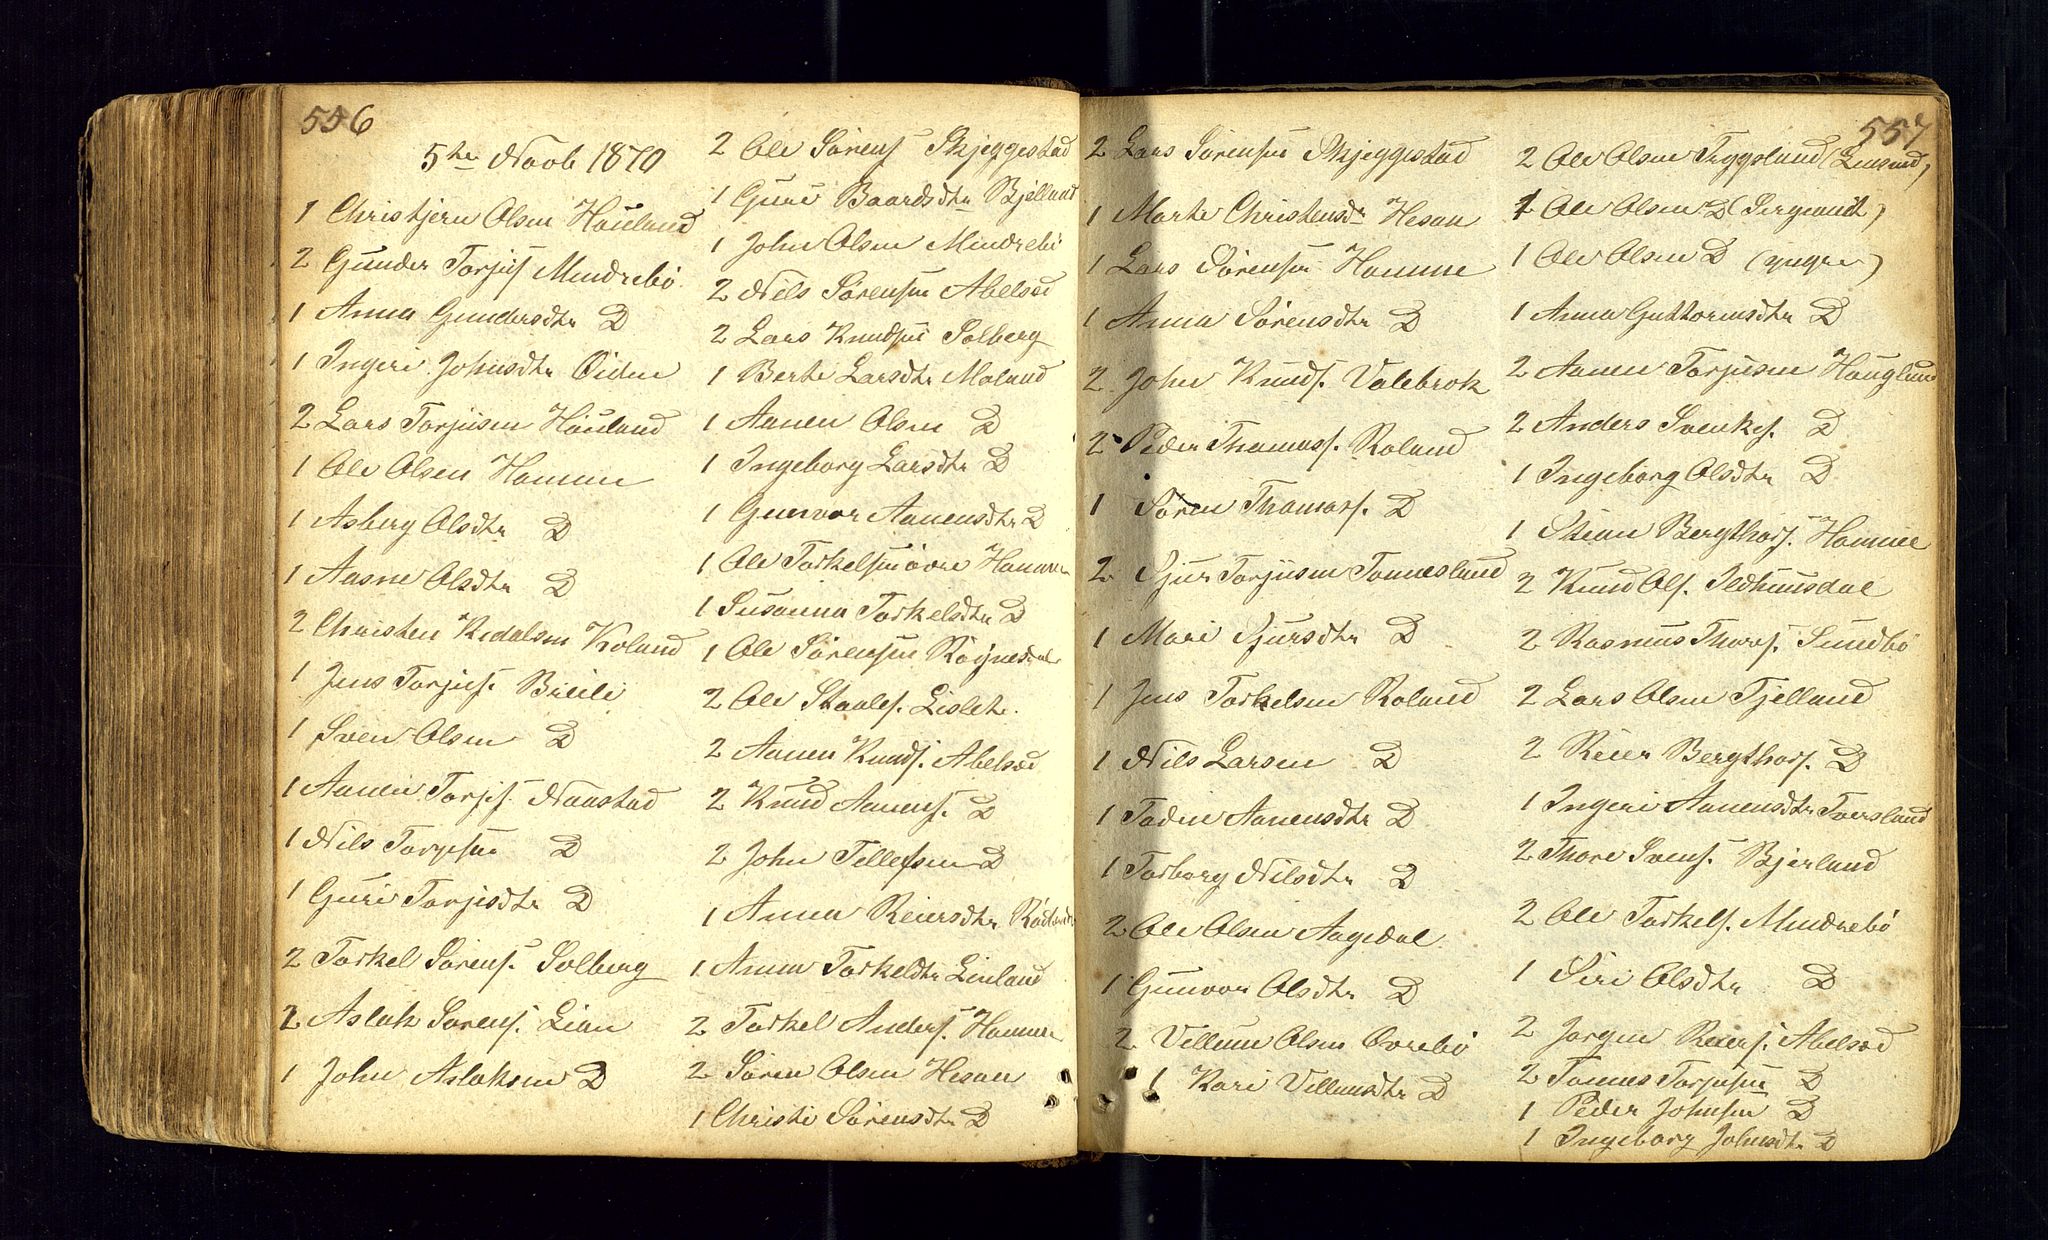 556
5te Novb 1870
1 Christjern Olsen Houland
2 Gunder Torjus Mindrebö
1 Anna Gundersdtr D
1 Ingeri Johnsdtr Eiden
2 Lars Torjusen Houland
1 Ole Olsen Homme
1 Asberg Olsdtr D
1 Aasne Olsdtr D
2 Christen Redalsen Roland
1 Jens Torjus.
1 Sven Olsen D
1 Aanen Torjs. Naastad
1 Nils Torjesen D
1 Guri Torjisdtr D
2 Torkel Sörens. Solberg
2 Aslak Sörens. Lian
1 John Aslaksen D
2 Ole Sörens Skjeggestad
1 Guri Baardsdtr Bjelland
1 John Olsen Mindrebö
2 Nils Sörensen Abelsæd
2 Lars Knudsen Solberg
1 Berte Larsdtr Moland
1 Aanen Olsen D
1 Ingeborg Larsdtr D
1 Gunvor Aanensdtr D
1 Ole Torkelsen övre Homme
1 Susanna Torkelsdtr D
1 Ole Sörensen Rögnesdal
2 Ole Staales. Lislet.
2 Aanen Knuds. Abelsæd
2 Knud Aanens. D
2 John Tellefsen D
1 Anna Reiersdtr
1 Anna Torkeldtr Linland
2 Torkel Anders. Homme
2 Sören Olsen Hesaa
1 Christi Sörensdtr D
557
2 Lars Sörensen Skjeggestad
1 Marte Christensdtr Hesaa
1 Lars Sörensen Homme
1 Anna Sörensdtr D
2 John Knuds. Valebrok
2 Peder Thomass. Roland
1 Sören Thomass. D
2 Sjur Torjusen Tonneslund
1 Mari Sjursdtr D
1 Jens Torkelsen Roland
1 Nils Larsen D
1 Todne Aanensdtr D
1 Torborg Nilsdtr D
2 Ole Olsen Aagedal
1 Gunvor Olsdtr D
2 Villum Olsen Övrebö
1 Kari Villumsdtr D
2 Ole Olsen Tryggsland
1 Ole Olsen D (Sergeant)
1 Ole Olsen D (yngre)
1 Anna Guttormsdtr D
2 Aanen Torjusen Houglund
2 Anders Svenkes. D
1 Ingeborg Olsdtr D
1 Stian Bergthors. Homme
2 Knud Ols. Ildhuusdal
2 Rasmus Thors. Sundbö
2 Lars Olsen Fjelland
2 Reier Bergthors. D
1 Ingeri Aanensdtr Tversland
2 Thore Svens. Bjerland
2 Ole Torkels. Mindrebö
1 Siri Olsdtr D
2 Jorgen Reiers. Abelsæd
2 Tonnes Torjusen D
1 Peder Johnsen D
1 Ingeborg Johnsdtr D